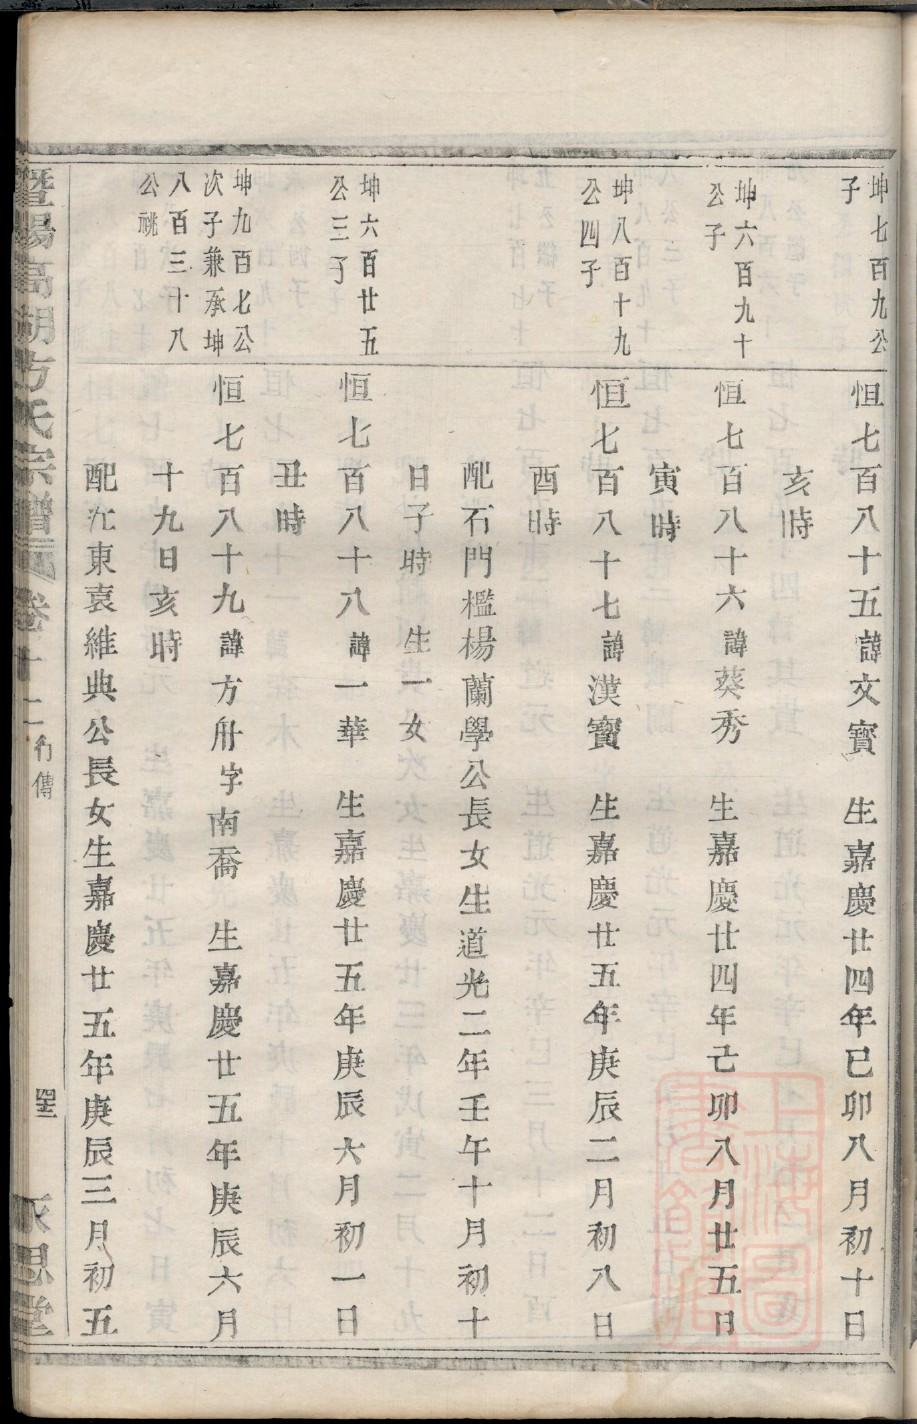 坤七百九公
子
恒七百八十五諱文寳　生嘉慶廿四年已卯八月初十日
亥時
坤六百九十
公子
恒七百八十六諱葵秀　生嘉慶廿四年已卯八月廿五日
寅時
坤八百十九
公四子
恒七百八十七諱漢寳　生嘉慶廿五年庚辰二月初八日
酉時
配石門檻楊蘭學公長女生道光二年壬午十月初十
日子時　生一女
坤六百廿五
公三子
恒七百八十八諱一華　生嘉慶廿五年庚辰六月初一日
丑時
坤九百七公
次子兼承坤
八百三十八
公祧
恒七百八十九諱方舟字南喬　生嘉慶廿五年庚辰六月
十九日亥時
配江東袁維典公長女生嘉慶廿五年庚辰三月初五
暨陽高湖方氏宗譜
卷十二行傳
思堂